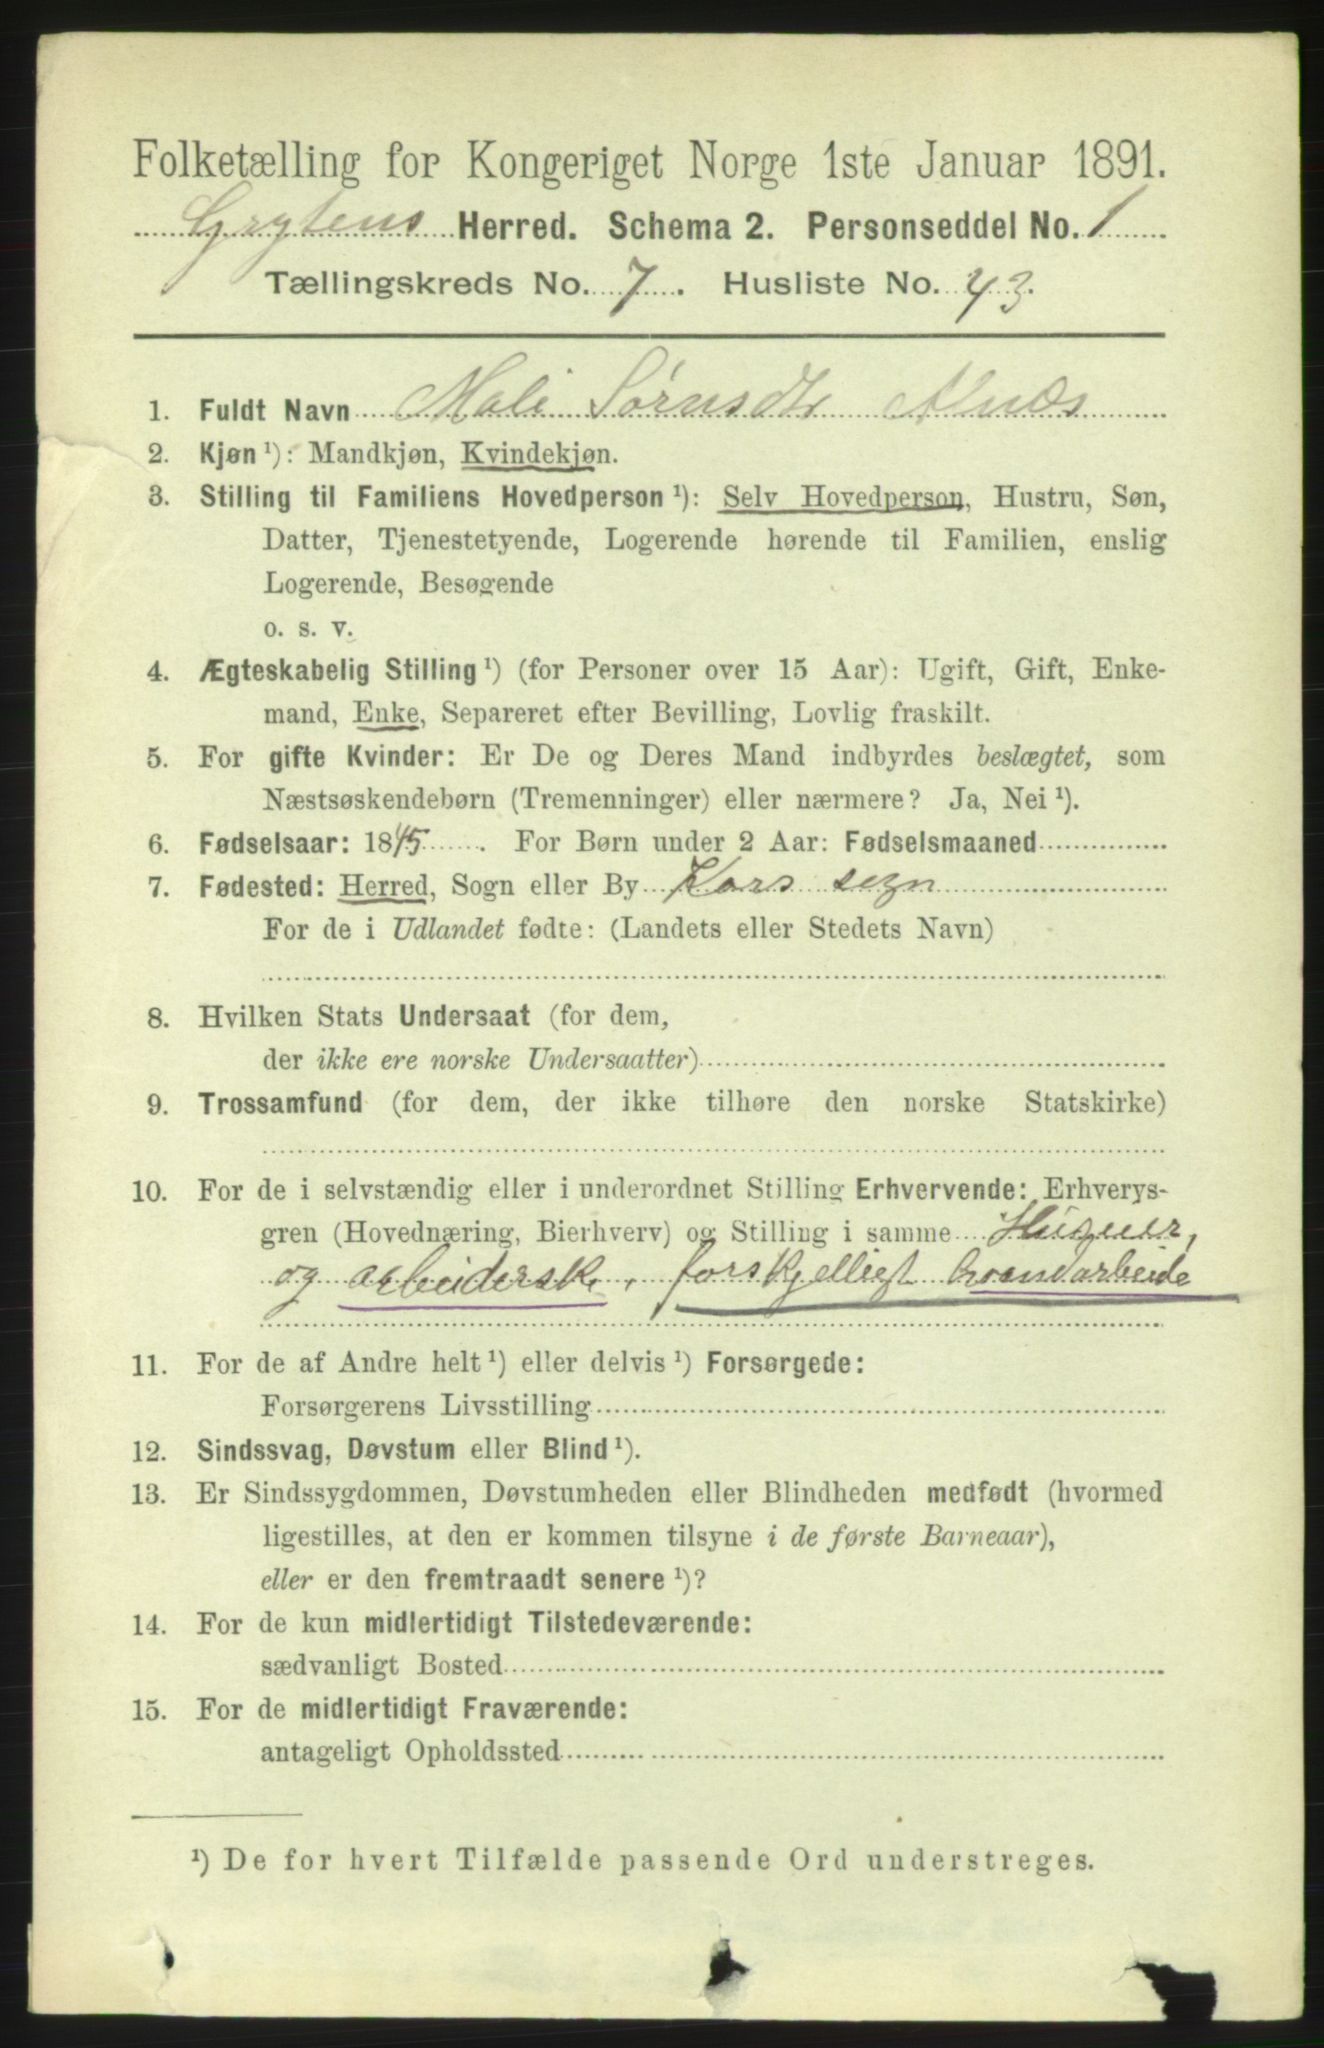 Folketælling for Kongeriget Norge 1ste Januar 1891.
Grytens Herred. Schema 2. Personseddel No. 1
Tællingskreds No. 7. Husliste No. 43.
1. Fuldt Navn Mali Sørnsdtr Alnæs
2. Kjøn¹): Mandkjøn, Kvindekjøn.
3. Stilling til Familiens Hovedperson¹): Selv Hovedperson, Hustru, Søn,
Datter, Tjenestetyende, Logerende hørende til Familien, enslig
Logerende, Besøgende
o. s. v.
4. Ægteskabelig Stilling¹) (for Personer over 15 Aar): Ugift, Gift, Enke-
mand, Enke, Separeret efter Bevilling, Lovlig fraskilt.
5. For gifte Kvinder: Er De og Deres Mand indbyrdes beslægtet, som
Næstsøskendebørn (Tremenninger) eller nærmere? Ja, Nei¹).
6. Fødselsaar: 1845. For Børn under 2 Aar: Fødselsmaaned
7. Fødested: Herred, Sogn eller By Kors sogn
For de i Udlandet fødte: (Landets eller Stedets Navn)
8. Hvilken Stats Undersaat (for dem,
der ikke ere norske Undersaatter)
9. Trossamfund (for dem, der ikke tilhøre den norske Statskirke)
10. For de i selvstændig eller i underordnet Stilling Erhvervende: Erhvervs-
gren (Hovednæring, Bierhverv) og Stilling i samme
og arbeiderske, forskjelligt haandarbeide
11. For de af Andre helt¹) eller delvis¹) Forsørgede:
Forsørgerens Livsstilling
12. Sindssvag, Døvstum eller Blind¹).
13. Er Sindssygdommen, Døvstumheden eller Blindheden medfødt (hvormed
ligestilles, at den er kommen tilsyne i de første Barneaar),
eller er den fremtraadt senere¹)?
14. For de kun midlertidigt Tilstedeværende:
sædvanligt Bosted
15. For de midlertidigt Fraværende:
antageligt Opholdssted
¹) De for hvert Tilfælde passende Ord understreges.